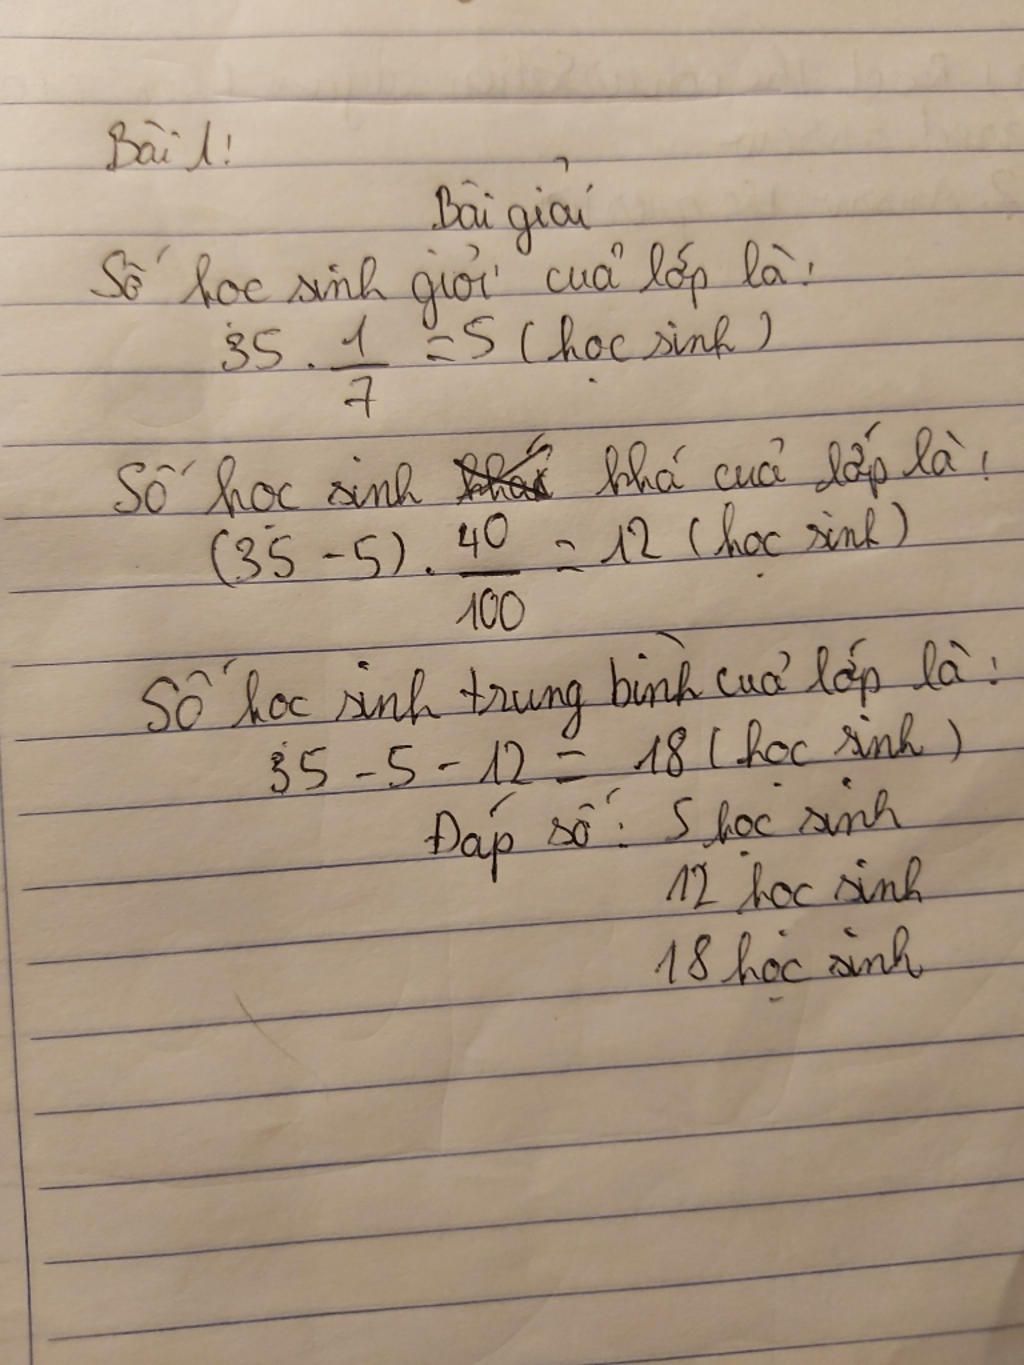 Bài 1:
Bài giải
Số học sinh giỏi của lớp là:
35 . 1/7 = 5 (học sinh)
Số học sinh khá của lớp là:
(35 - 5) . 40/100 = 12 (học sinh)
Số học sinh trung bình của lớp là:
35 - 5 - 12 = 18 (học sinh)
Đáp số: 5 học sinh
12 học sinh
18 học sinh